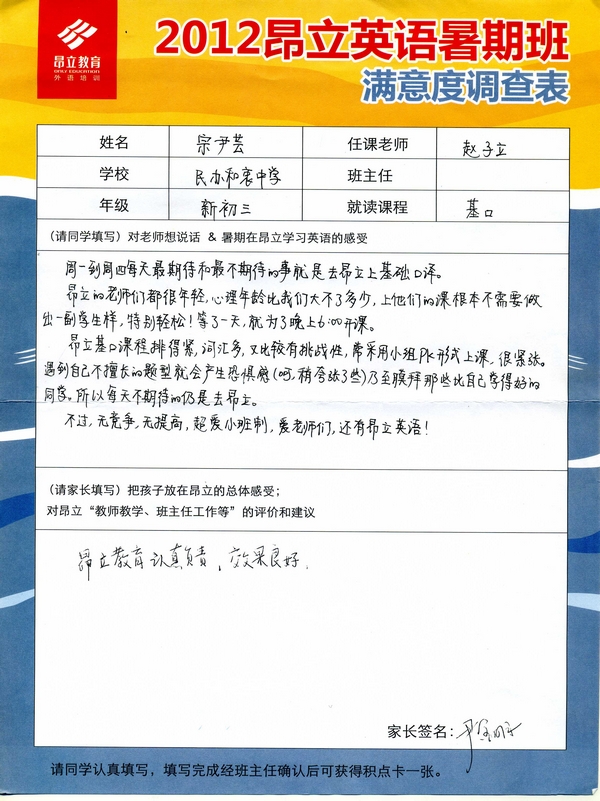 昂立教育
ONLY EDUCATION
外语培训
2012昂立英语暑期班
满意度调查表
姓名 宗尹芸 任课老师 赵子立
学校 民办和衷中学 班主任
年级 新初三 就读课程 基口
(请同学填写)对老师想说话 & 暑期在昂立学习英语的感受
周一到周四每天最期待和最不期待的事就是去昂立上基础口译。
昂立的老师们都很年轻,心理年龄比我们大不了多少,上他们的课根本不需要做
出一副学生样,特别轻松!等了一天,就为了晚上6:00开课。
昂立基口课程排得紧,词汇多,又比较有挑战性,常采用小组PK形式上课,很紧张。
遇到自己不擅长的题型就会产生恐惧感(呵,稍夸张了些)乃至膜拜那些比自己学得好的
同学。所以每天不期待的仍是去昂立。
不过,无竞争,无提高,超爱小班制,爱老师们,还有昂立英语!
(请家长填写)把孩子放在昂立的总体感受;
对昂立“教师教学、班主任工作等”的评价和建议
昂立教育认真负责,效果良好.
家长签名:
请同学认真填写,填写完成经班主任确认后可获得积点卡一张。